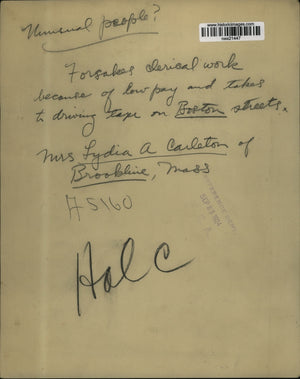 Unusual people?
www.historicimages.com
nea21447
Forsakes clerical work
because of low pay and takes
to driving taxi on Boston streets.
Mrs Lydia A Carleton of
Brookline, Mass
A5160
Hal C